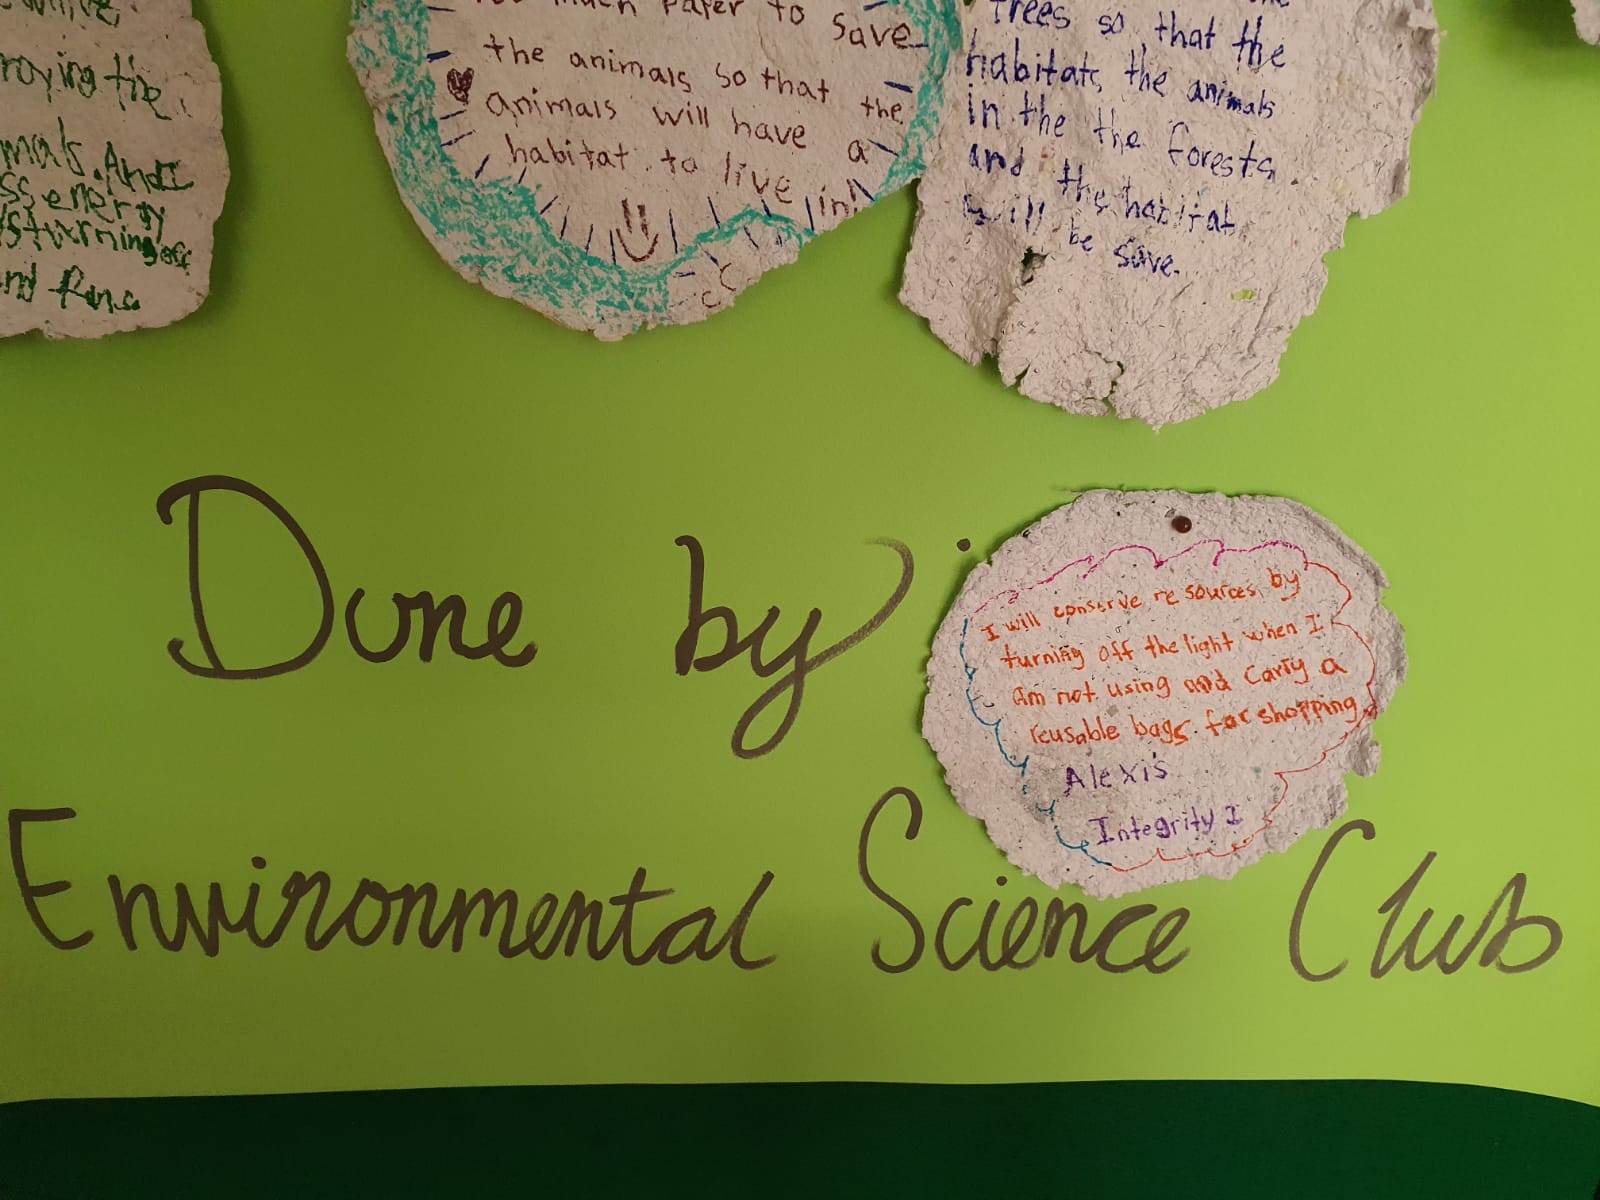 roying the
mals. And I
ss energy
turning off
nd fans
too much paper to save
the animals so that the
animals will have a
habitat to live in!
Trees so that the
habitats the animals
in the the forests
and the habitat
will be save.
Done by
I will conserve resources by
turning off the light when I
am not using and carry a
reusable bags for shopping
Alexis
Integrity 1
Environmental Science Club